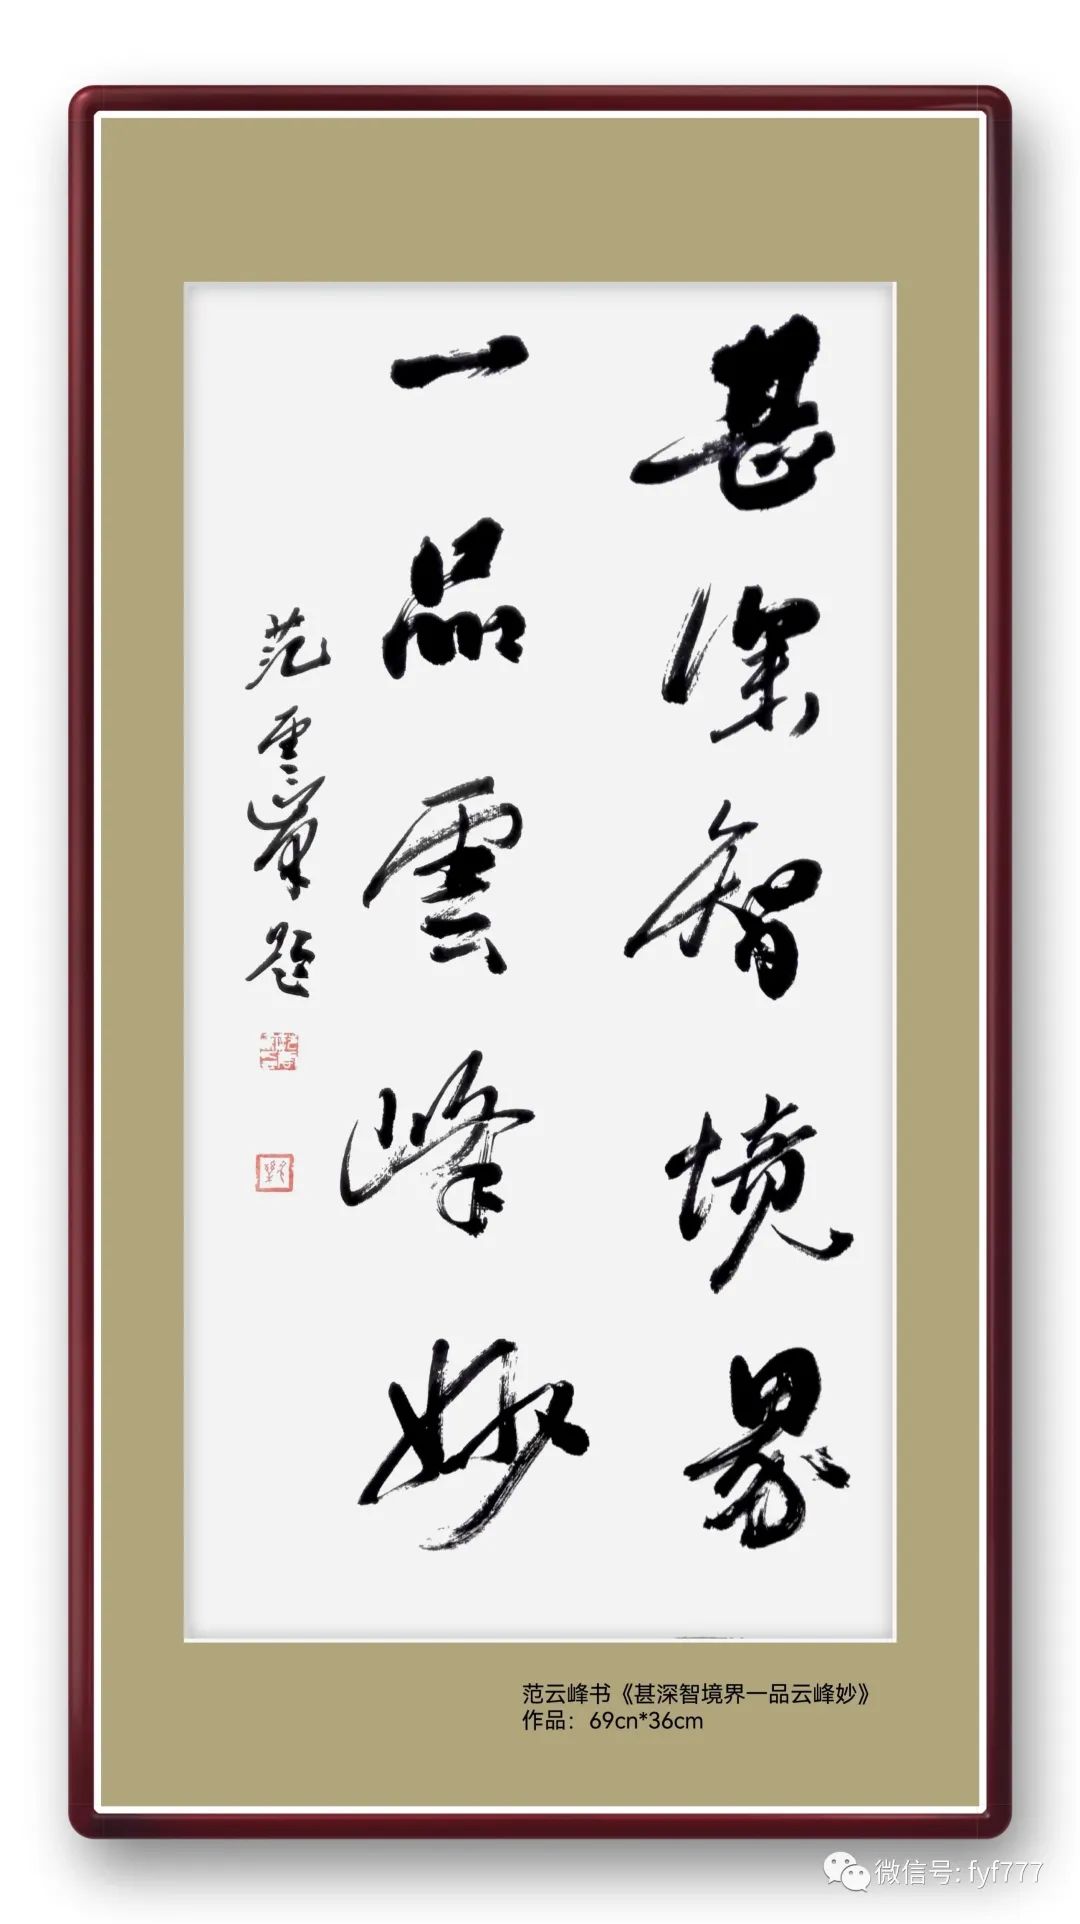 甚深智境界
一品雲峰妙
范雲峯題
范云峰书《甚深智境界一品云峰妙》
作品：69cn*36cm
微信号: fyf777